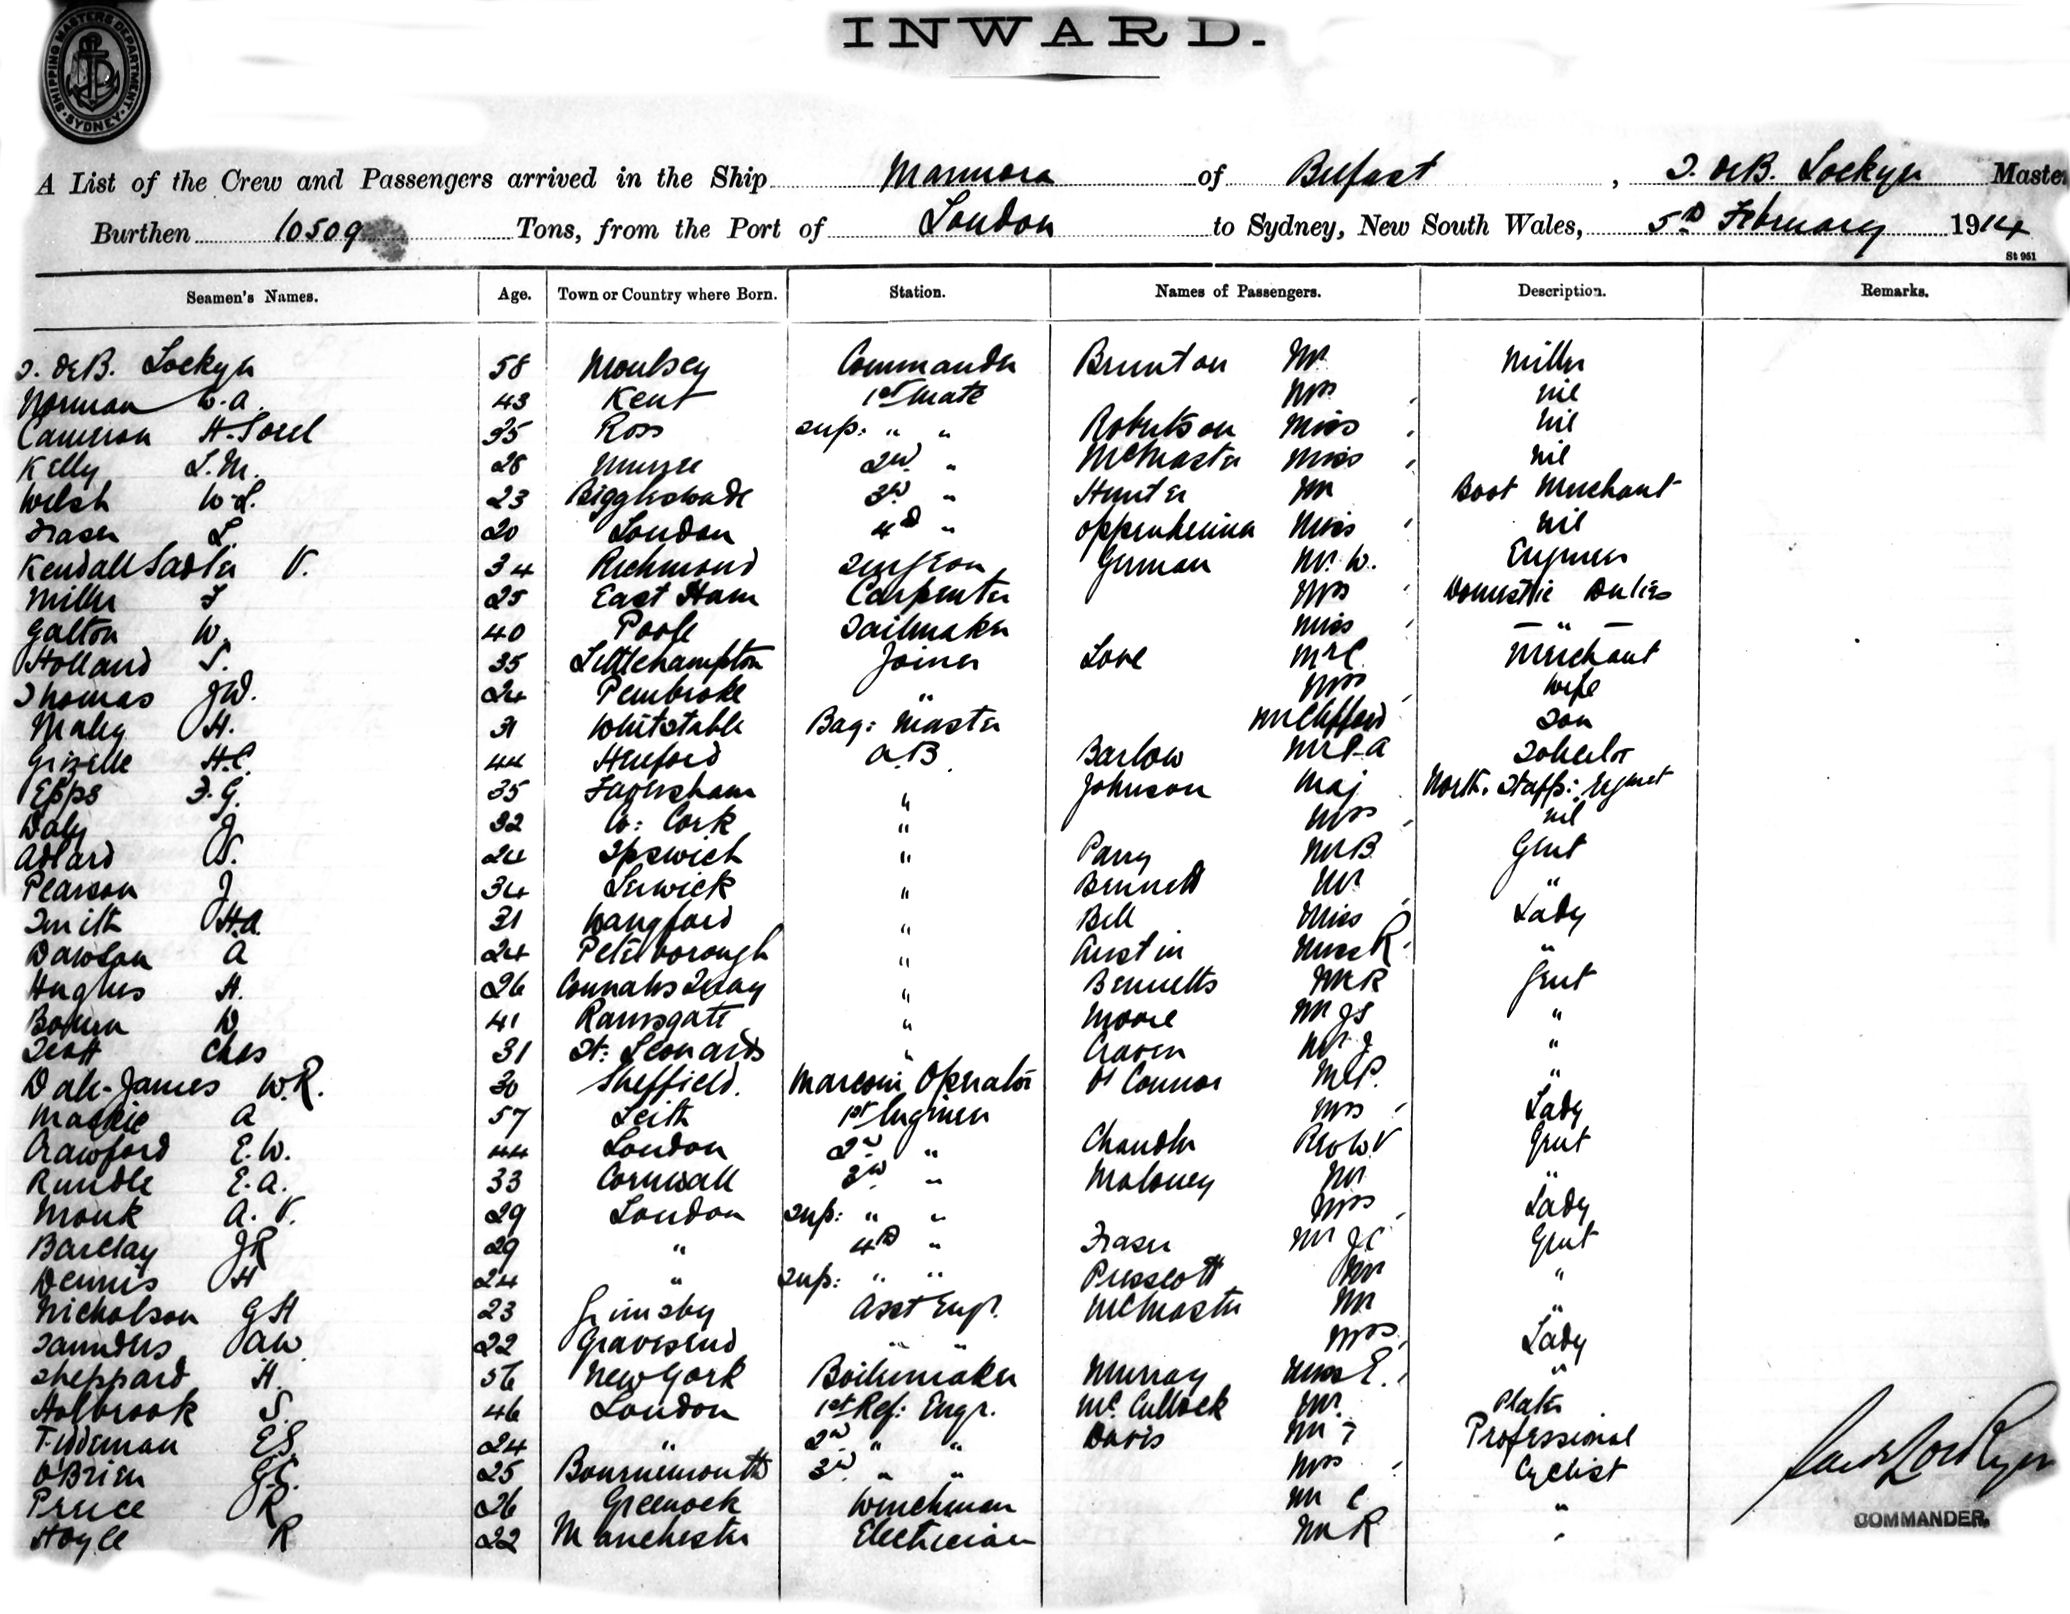 SHIPPING MASTERS DEPARTMENT. SYDNEY.
INWARD.
A List of the Crew and Passengers arrived in the Ship Marmora of Belfast, S. deB. Lockyer Master
Burthen 10509 Tons, from the Port of London to Sydney, New South Wales, 5th February 1914
St 951
Seamen's Names. Age. Town or Country where Born. Station. Names of Passengers. Description. Remarks.
S. deB. Lockyer 58 Moulsey Commander Brunton Mr Miller
Norman W.A. 43 Kent 1st Mate Mrs nil
Cameron H. Sorel 35 Ross Sup: " " Robertson Miss nil
Kelly L.M. 28 2nd " McMaster Miss nil
Welsh W.L. 23 Biggleswade 3rd " Hunter Mr Boot Merchant
Fraser L. 20 London 4th " Oppenheimer Miss nil
Kendall Sadler V. 34 Richmond Surgeon German Mr. W. Engineer
Miller F 25 East Ham Carpenter Mrs Domestic Duties
Galton W. 40 Poole Sailmaker Miss — " —
Holland S. 35 Littlehampton Joiner Love Mr C. Merchant
Thomas J.W. 24 Pembroke " Mrs Wife
Maley H. 31 Whitstable Bag: Master Mr Clifford Son
Grizelle H.C. 44 Hereford A.B. Barlow Mr C.A Solicitor
Epps F.G. 35 Faversham " Johnson Maj North. Staffs: Regmet
Daly J 32 Co: Cork " Mrs nil
Adlard S. 24 Ipswich " Parry Mr B. Gent
Pearson J 34 Lerwick " Bennett Mr "
Smith H.A. 31 Wangford " Bell Miss Lady
Dawson A 24 Peterborough " Austin Miss R. "
Hughes H. 26 Connahs Quay " Bennetts Mr R Gent
W 41 Ramsgate " Moore Mr JS "
Scott Chas 31 St: Leonards " Craven Mr J "
Dale-James W.R. 30 Sheffield. Marconi Operator O'Connor Mr P. "
Mackie A 57 Leith 1st Engineer Mrs Lady
Crawford E.W. 44 London 2nd " Chandler Rev W.V Gent
Rundle E.A. 33 Cornwall 3rd " Maloney Mr "
Monk A.V. 29 London Sup: " " Mrs Lady
Barclay JR 29 " 4th " Fraser Mr JC Gent
Dennis H 24 " Sup: " " Prescott Mr "
Nicholson GH 23 Grimsby Asst Engr. McMaster Mr "
Saunders AW 22 Gravesend " " Mrs Lady
Sheppard H. 56 New York Boilermaker Murray Miss E. "
Holbrook S. 46 London 1st Ref: Engr. McCullock Mr. Plater
Tiddeman ES. 24 " 2nd " " Davis Mr F Professional
O'Brien G.C. 25 Bournemouth 3rd " " Mrs Cyclist
Pruce R 26 Greenock Winchman Mr C "
Hoyle R 22 Manchester Electrician Mr R "
COMMANDER.